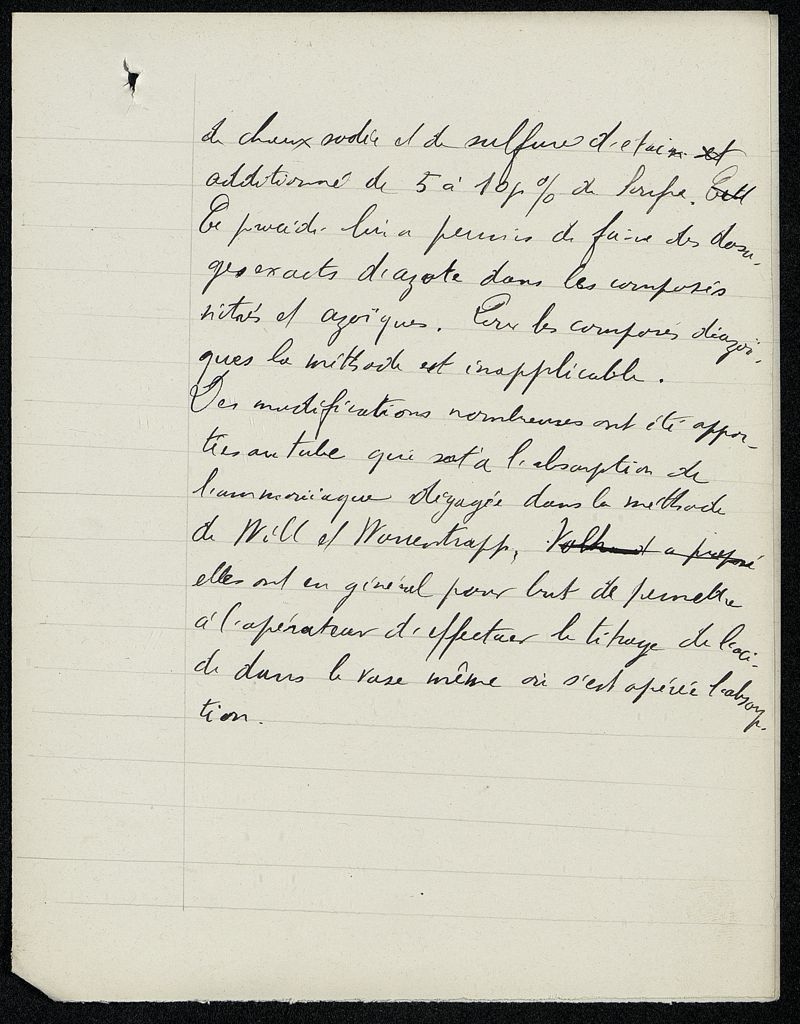 de chaux sodée et de sulfure d'étain et
additionné de 5 à 10 p % de soufre. Cett
Ce procédé lui a permis de faire des dosa-
ges exacts d'azote dans les composés
nitrés et azoïques. Pour les composés diazoï-
ques la méthode est inapplicable.
Des modifications nombreuses ont été appor-
tées au tube qui sert à l'absorption de
l'ammoniaque dégagée dans la méthode
de Will et Warrentrapp, Volhard a proposé
elles ont en général pour but de permettre
à l'opérateur d'effectuer le titrage de l'aci-
de dans le vase même où s'est opérée l'absorp-
tion.